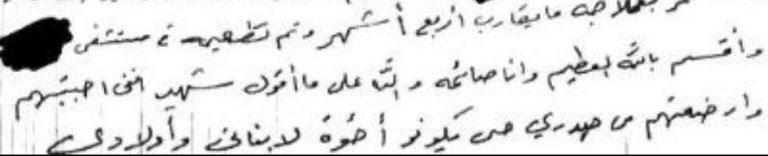 بعلاجه مايقارب أربع أشهر وتم تطعيمه في مستشفى
وأقسم بالله العظيم وانا صائمه والله على ما أقول شهيد انني احببتهم
وارضعتهم من صدري حتى يكونو أخوة لابنائي وأولادي